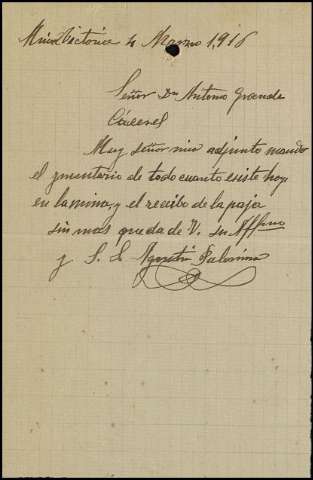 Mina Victoria 4 Marzo 1,916
Señor Dn Antonio Grande
Cáceres
Muy señor mio adjunto mando
el ynventario de todo cuanto esiste hoy
en la mina, y el recibo de la paja
sin mas queda de V. su Affmo
y S. S. Agustin Palomino